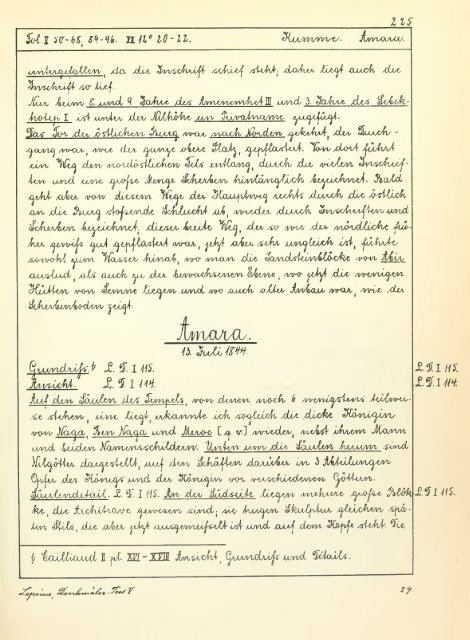 225
Fol. II 50-68, 84-96. IX 12° 20-22. Kumme. Amara.
untergefallen, da die Inschrift schief steht, daher liegt auch die
Inschrift so tief.
Nur beim 8. und 9. Jahre des Amenemhet III und 3. Jahre des Sebek-
hotep I ist unter der Nilhöhe ein Privatname zugefügt.
Das Tor der östlichen Burg war nach Norden gekehrt, der Durch-
gang war, wie der ganze obere Platz, gepflastert. Von dort führt
ein Weg den nordöstlichen Fels entlang, durch die vielen Inschrif-
ten und eine große Menge Scherben hinlänglich bezeichnet. Bald
geht aber von diesem Wege der Hauptweg rechts durch die östlich
an die Burg stoßende Schlucht ab, wieder durch Inschriften und
Scherben bezeichnet, dieser breite Weg, der so wie der nördliche frü-
her gewiß gut gepflastert war, jetzt aber sehr ungleich ist, führte
sowohl zum Wasser hinab, wo man die Sandsteinblöcke von Abir
auslud, als auch zu der bewachsenen Ebene, wo jetzt die wenigen
Hütten von Semne liegen und wo auch alter Anbau war, wie der
Scherbenboden zeigt.
Amara.
13. Juli 1844.
Grundriß.§ L. D. I 115. L. D. I 115.
Ansicht. L. D. I 114. L. D. I 114.
Auf den Säulen des Tempels, von denen noch 6 wenigstens teilwei-
se stehen, eine liegt, erkannte ich sogleich die dicke Königin
von Naga, Ben Naga und Meroe [q v] wieder, nebst ihrem Mann
und beiden Namensschildern. Unten um die Säulen herum sind
Nilgötter dargestellt, auf den Schäften darüber in 3 Abteilungen
Opfer des Königs und der Königin vor verschiedenen Göttern.
Säulendetail. L. D. I 115. An der Südseite liegen mehrere große Blök- L. D. I 115.
ke, die Architrave gewesen sind; sie trugen Skulptur gleichen spä-
ten Stils, die aber jetzt ausgemeißelt ist und auf dem Kopfe steht. Die
§ Cailliaud II pl. XVI - XVIII Ansicht, Grundriß und Details.
Lepsius, Denkmäler. Text V 29